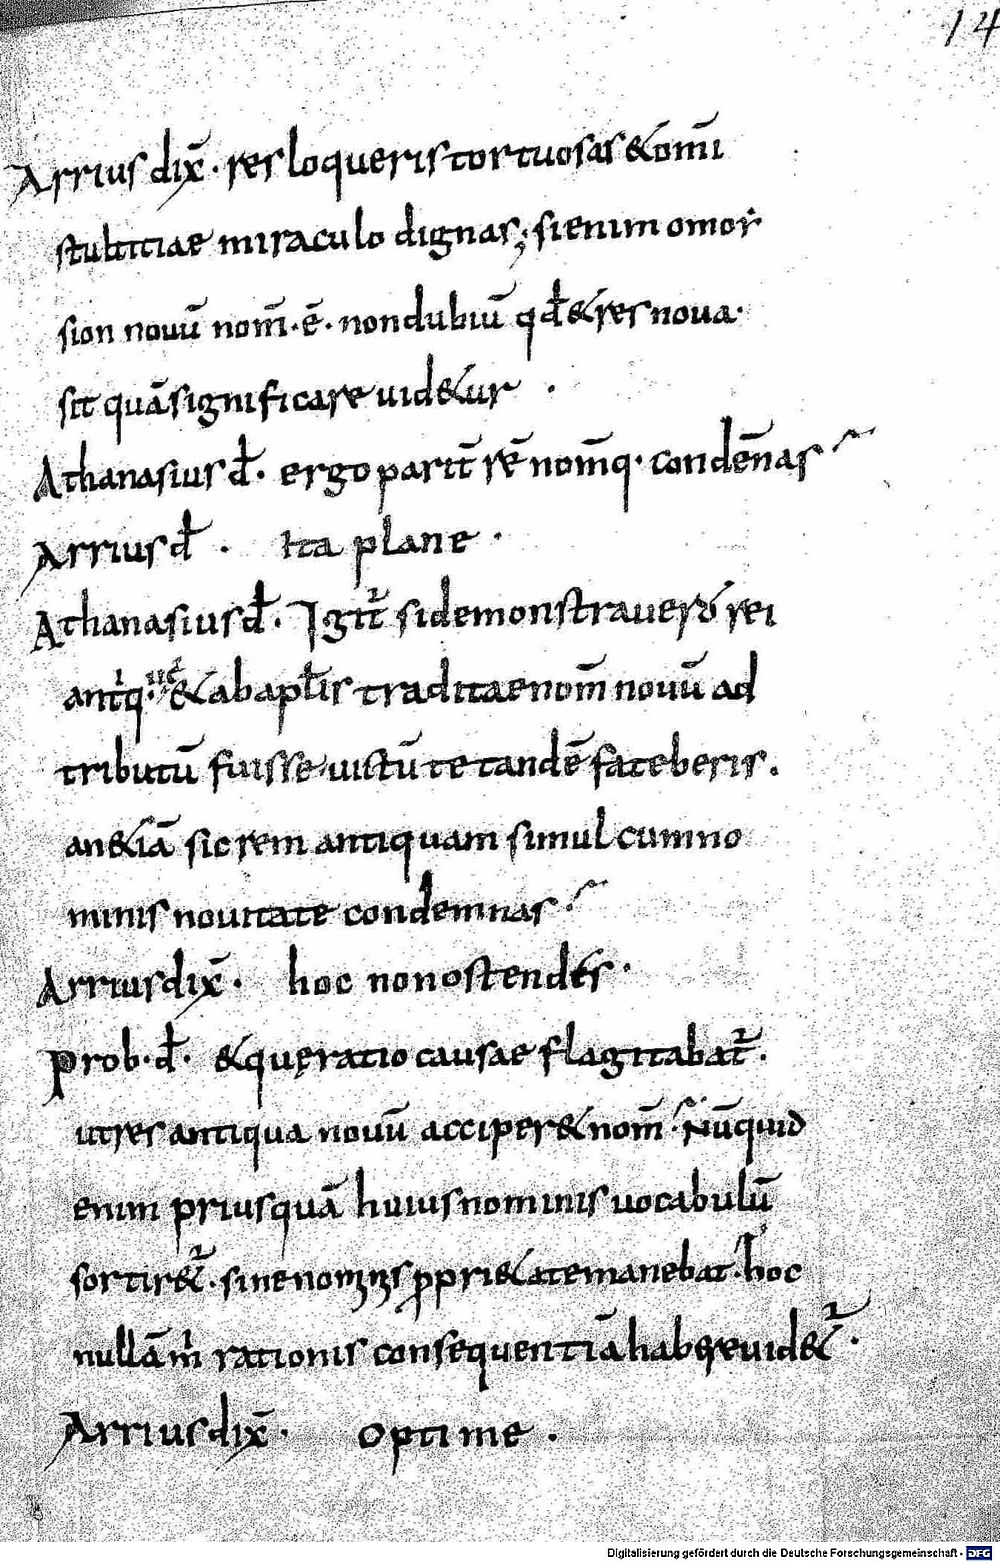 14
Arrius dix̄. res loqueris tortuosas & om̄i
stultitiae miraculo dignas; si enim omor
sion nouū nom̄. ē. non dubiū qđ & res noua.
sit quā significare uid&ur .
Athanasius đ. ergo parit̄ rē nom̄q. condēnas
Arrius đ . Ita plane .
Athanasius đ. Igit̄ si demonstrauero rei
antiq. & ab apłis traditae nom̄ nouū ad
tributū fuisse. uictū te tandē fateberis.
an &iā sic rem antiquam simul cum no
minis nouitate condemnas
Arrius dix̄. hoc non ostendes.
Prob. đ. & quę ratio causae flagitabat̄.
ut res antiqua nouū acciper& nom̄. Nūquid
enim priusquā huius nominis uocabulū
sortir&. sine nominis ꝓpri&ate manebat. hoc
nullā m̄ rationis consequentiā habere uid&.
Arrius dix̄. optime .
Digitalisierung gefördert durch die Deutsche Forschungsgemeinschaft - DFG